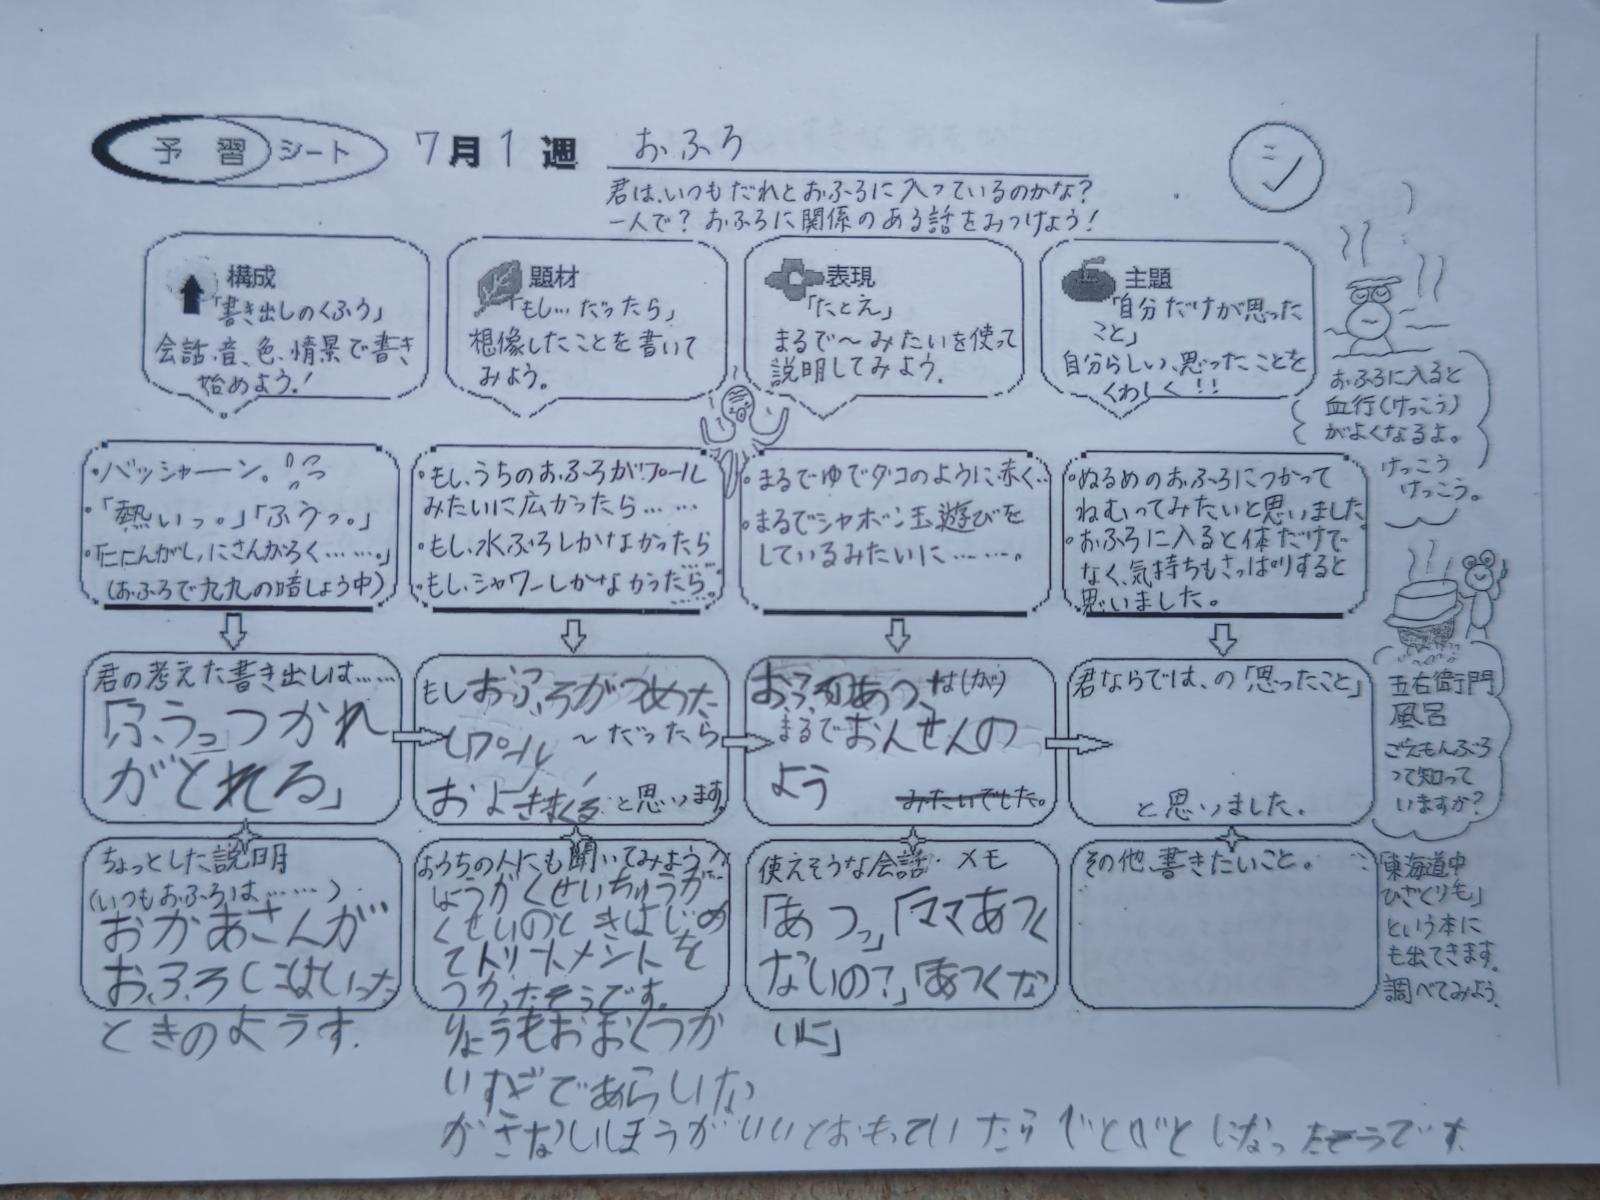 予習シート 7月1週 おふろ
ミシ
君は、いつもだれとおふろに入っているのかな?
一人で? おふろに関係のある話をみつけよう!
構成
「書き出しのくふう」
会話、音、色、情景で書き
始めよう!
題材
「もし…だったら」
想像したことを書いて
みよう。
表現
「たとえ」
まるで〜みたいを使って
説明してみよう。
主題
「自分だけが思った
こと」
自分らしい、思ったことを
くわしく!!
おふろに入ると
血行(けっこう)
がよくなるよ。
けっこう
けっこう。
・バッシャーン。
・「熱いっ。」「ふうっ。」
・「ににんがし、にさんがろく………」
(おふろで九九の暗しょう中)
・もし、うちのおふろがプール
みたいに広かったら……
・もし、水ぶろしかなかったら
・もし、シャワーしかなかったら…
・まるでゆでダコのように赤く…
・まるでシャボン玉遊びを
しているみたいに………。
・ぬるめのおふろにつかって
ねむってみたいと思いました
・おふろに入ると体だけで
なく、気持ちもさっぱりすると
思いました。
君の考えた書き出しは……
「ふうっ」つかれ
がとれる」
もしおふろがつめた
いプール 〜だったら
と思います。
まるでおんせんの
よう みたいでした。
君ならではの「思ったこと」
と思いました。
五右衛門
風呂
ごえもんぶろ
って知って
いますか?
ちょっとした説明
(いつもおふろは……)
おかあさんが
おふろにはいった
ときのようす.
おうちの人にも聞いてみよう!
しょうがくせいちゅうが
くせいのときはじめ
てトリートメントを
つかったそうです.
りょうもおおくつか
いすぎてあらいな
がさないほうがいいとおもっていたらべとべとになったそうです.
使えそうな会話・メモ
「あつっ」「ママあつく
ないの?」「あつくな
いよ」
その他、書きたいこと。
「東海道中
ひざくりも」
という本に
も出てきます。
調べてみよう。